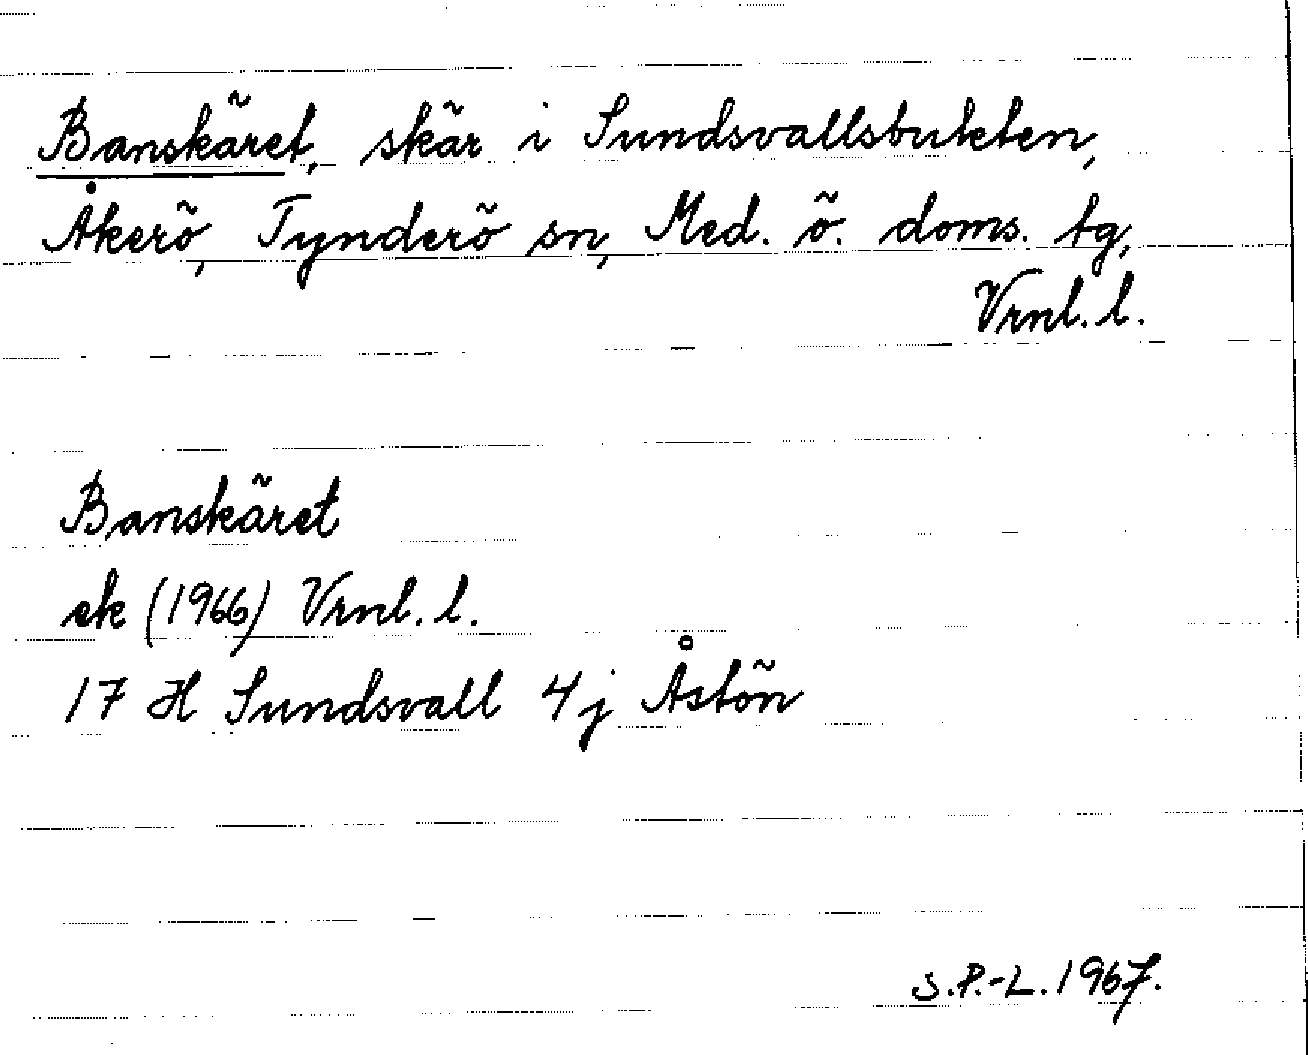 Banskäret, skär i Sundsvallsbukten,
Åkerö, Tynderö sn, Med. ö. doms. tg,
Vrnl. l.
Banskäret
ek (1966) Vrnl. l.
17 H Sundsvall 4j Åstön
S.P.-L. 1967.